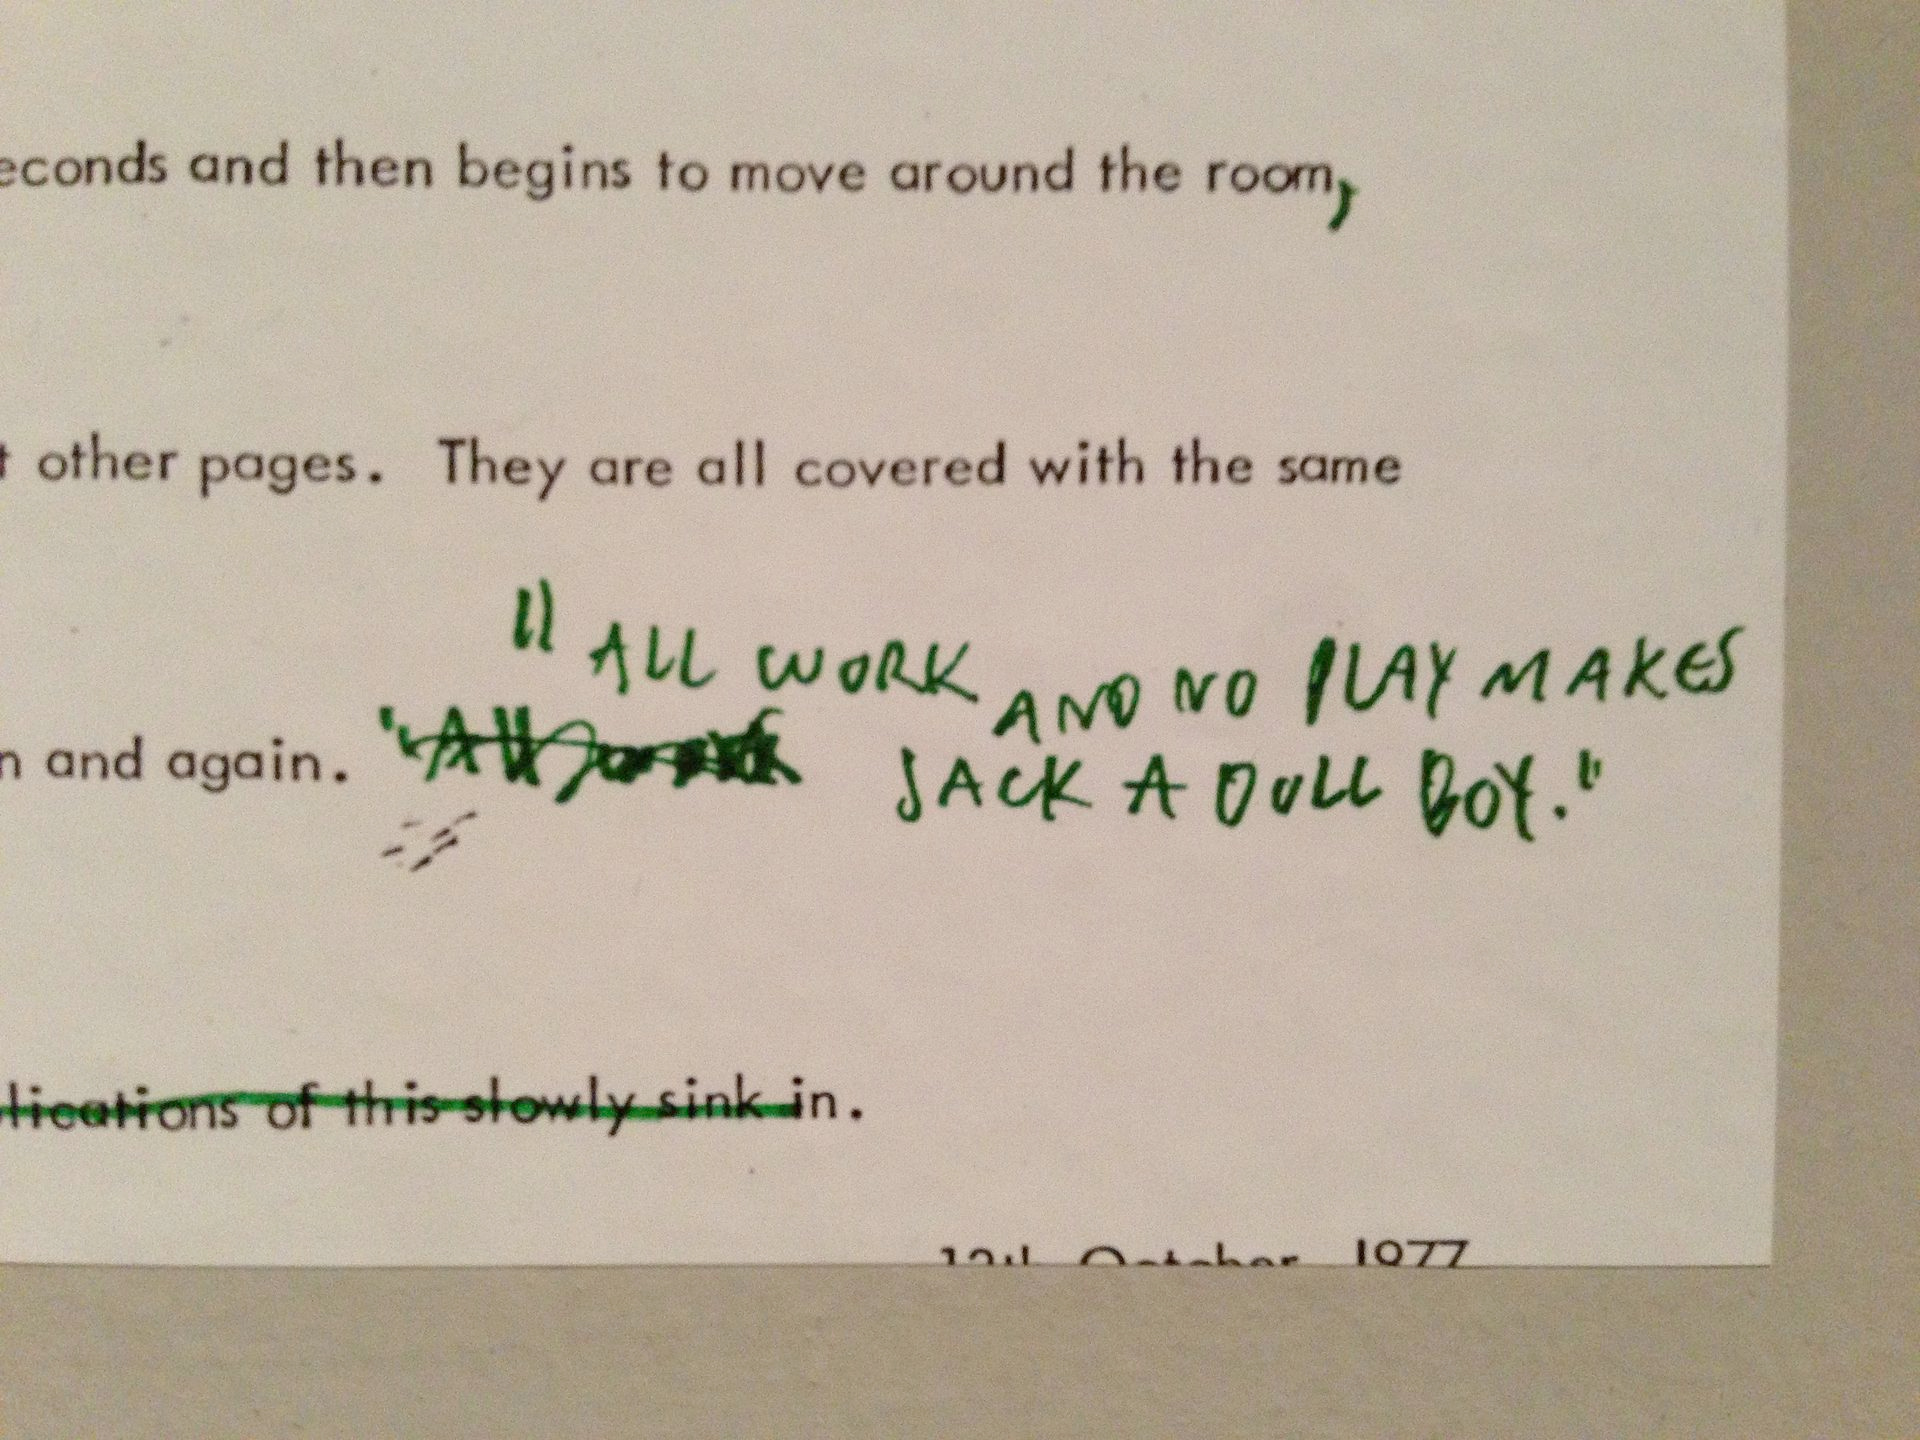 econds and then begins to move around the room,
t other pages. They are all covered with the same
"ALL WORK AND NO PLAY MAKES
n and again. JACK A DULL BOY."
lications of this slowly sink in.
October 1977